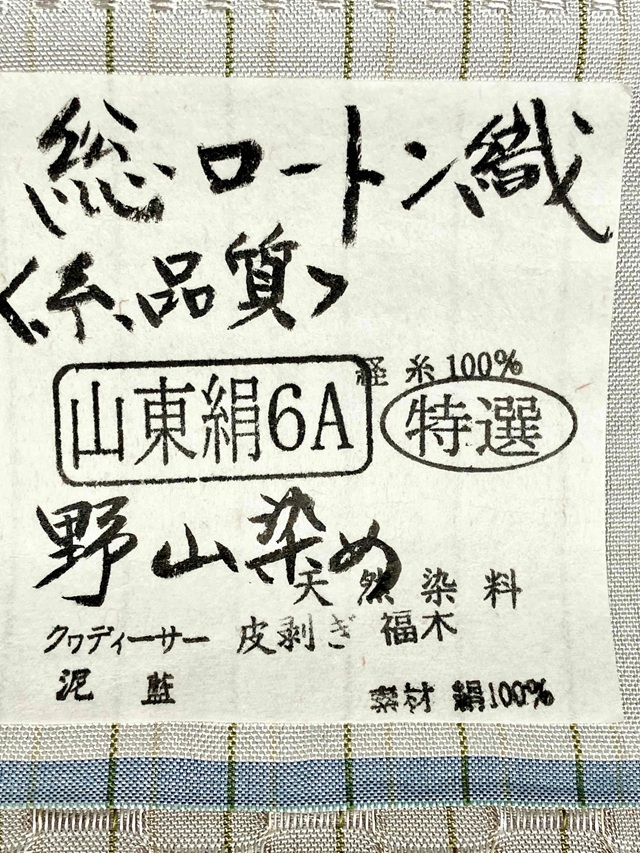 総ロートン織
<糸品質>
経糸100%
山東絹6A 特選
野山染め
天然染料
クワディーサー 皮剥ぎ 福木
泥 藍
素材 絹100%